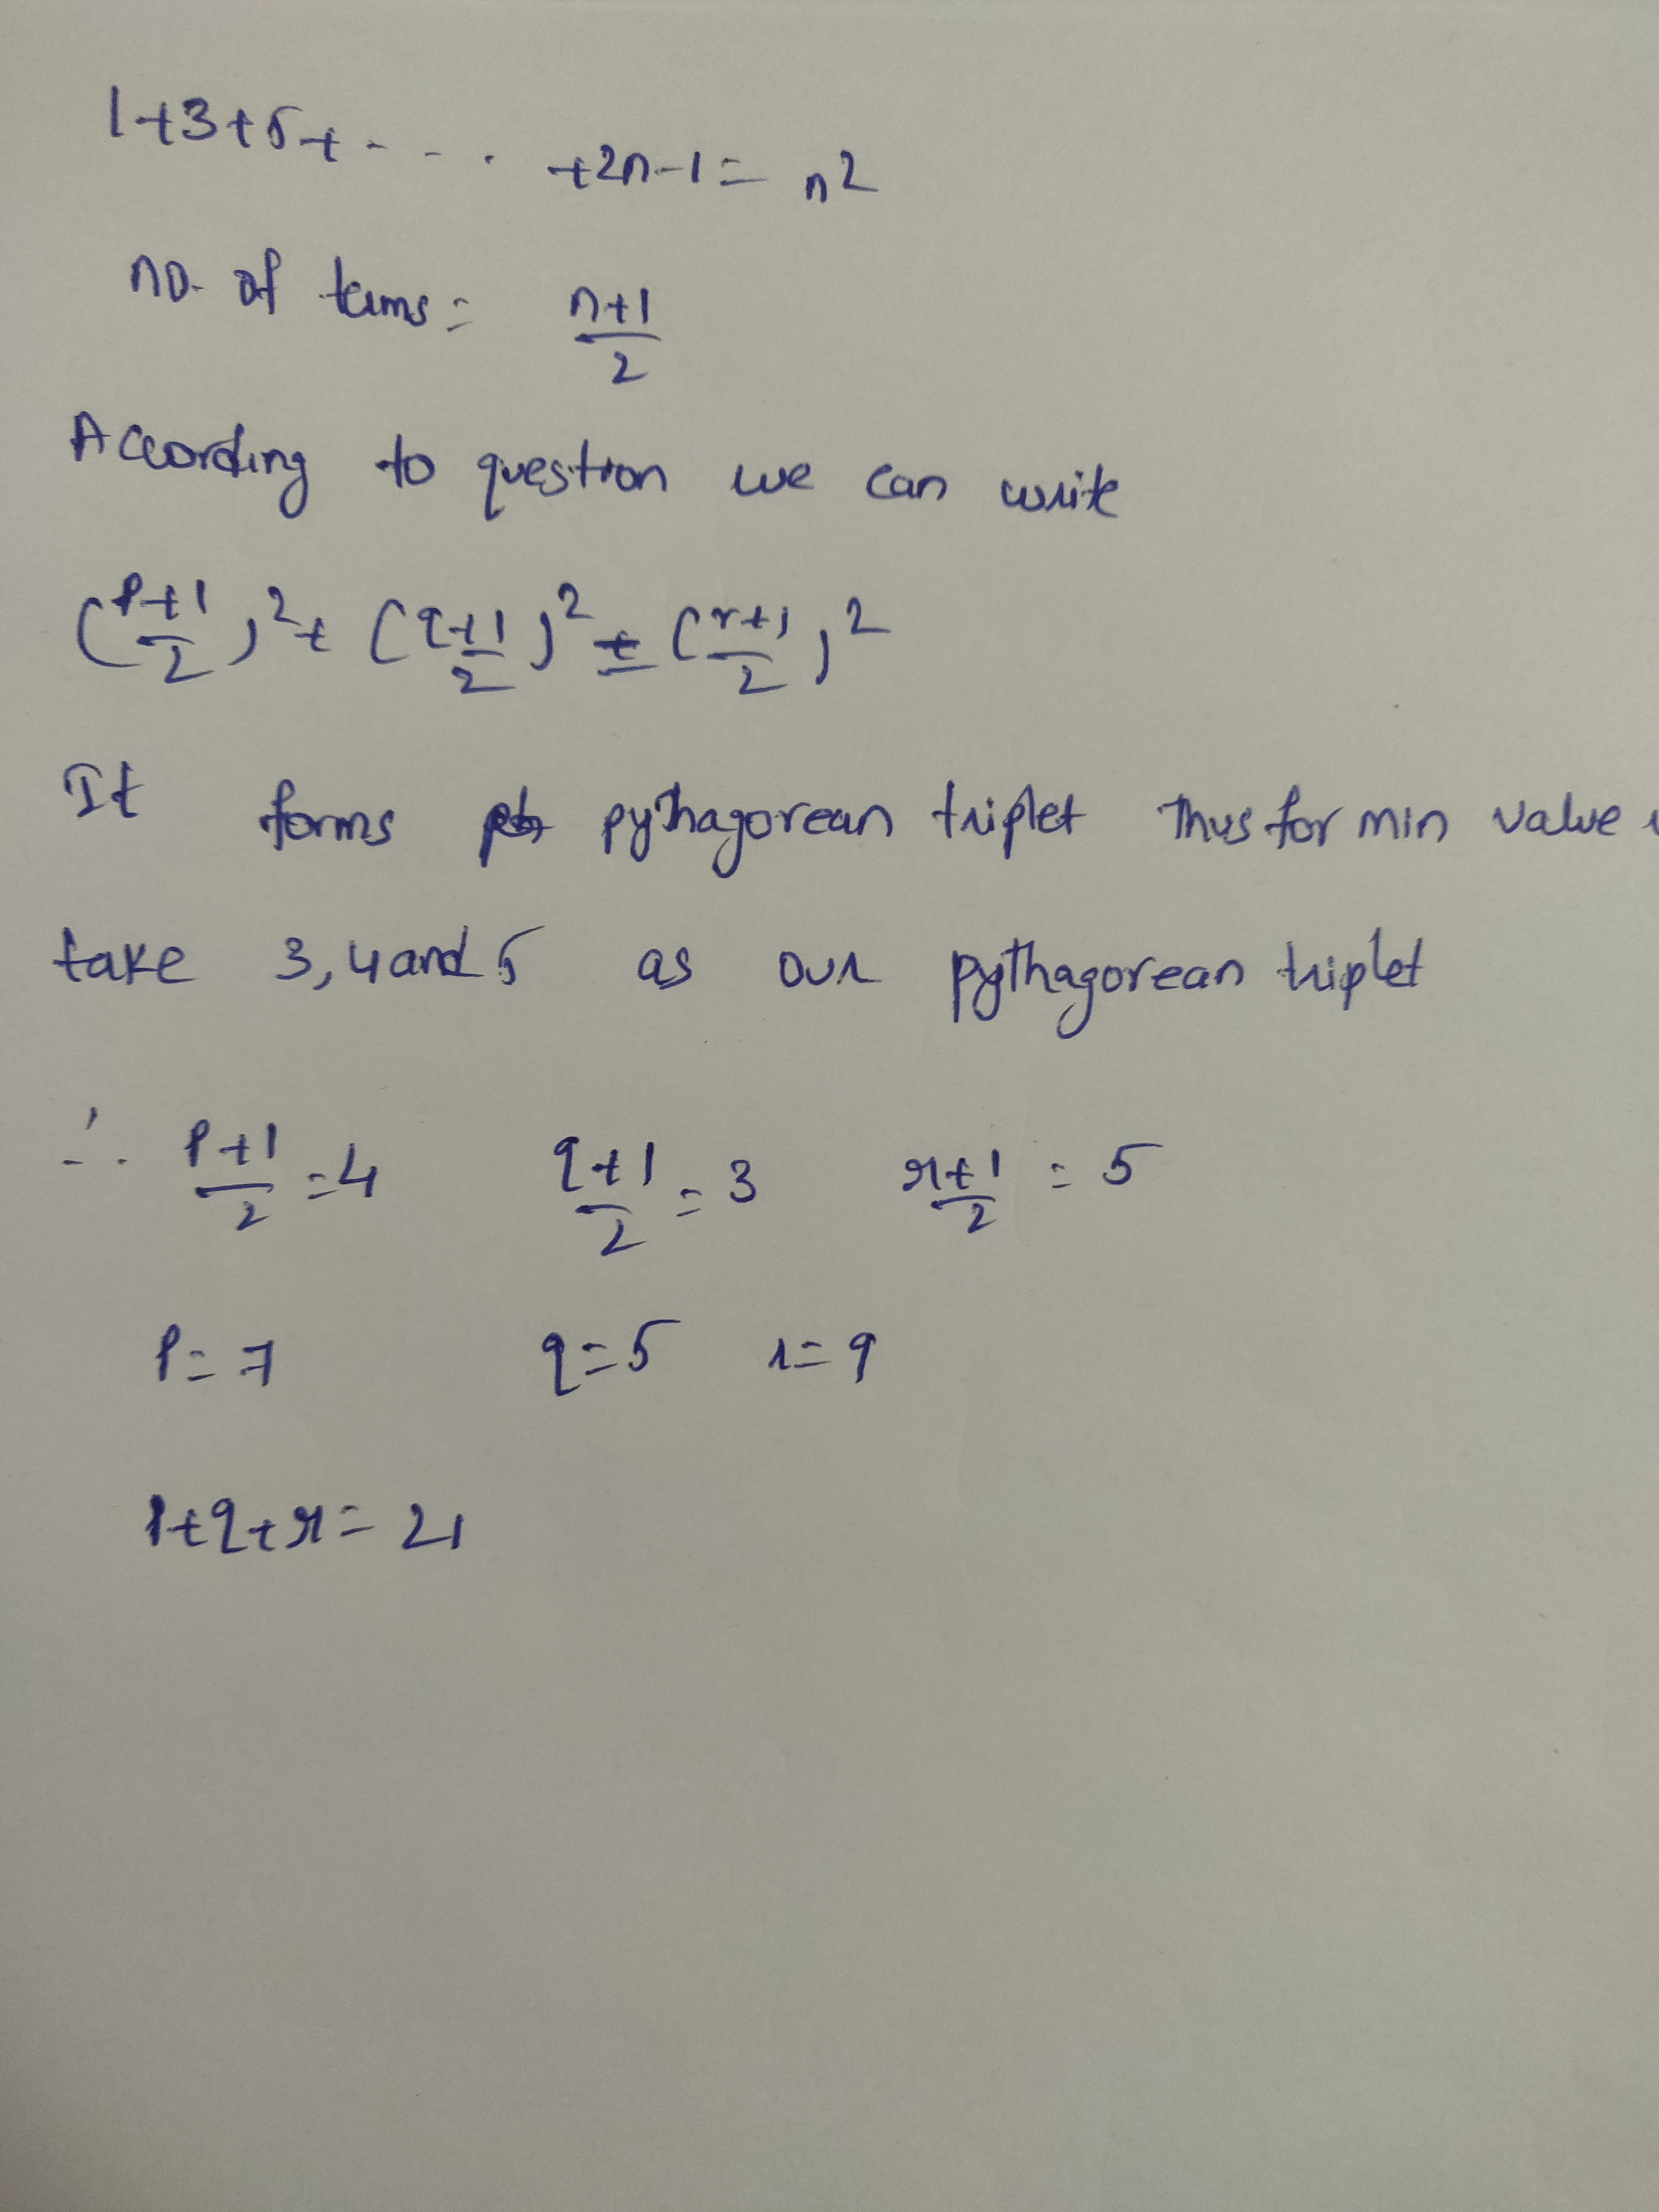 1+3+5+ - - - . +2n-1 = n²
no. of terms = n+1/2
According to question we can write
(p+1/2)² + (q+1/2)² = (r+1/2)²
It forms pythagorean triplet Thus for min value
take 3, 4 and 5 as our pythagorean triplet
∴ p+1/2 = 4 q+1/2 = 3 r+1/2 = 5
p = 7 q = 5 r = 9
p+q+r = 21